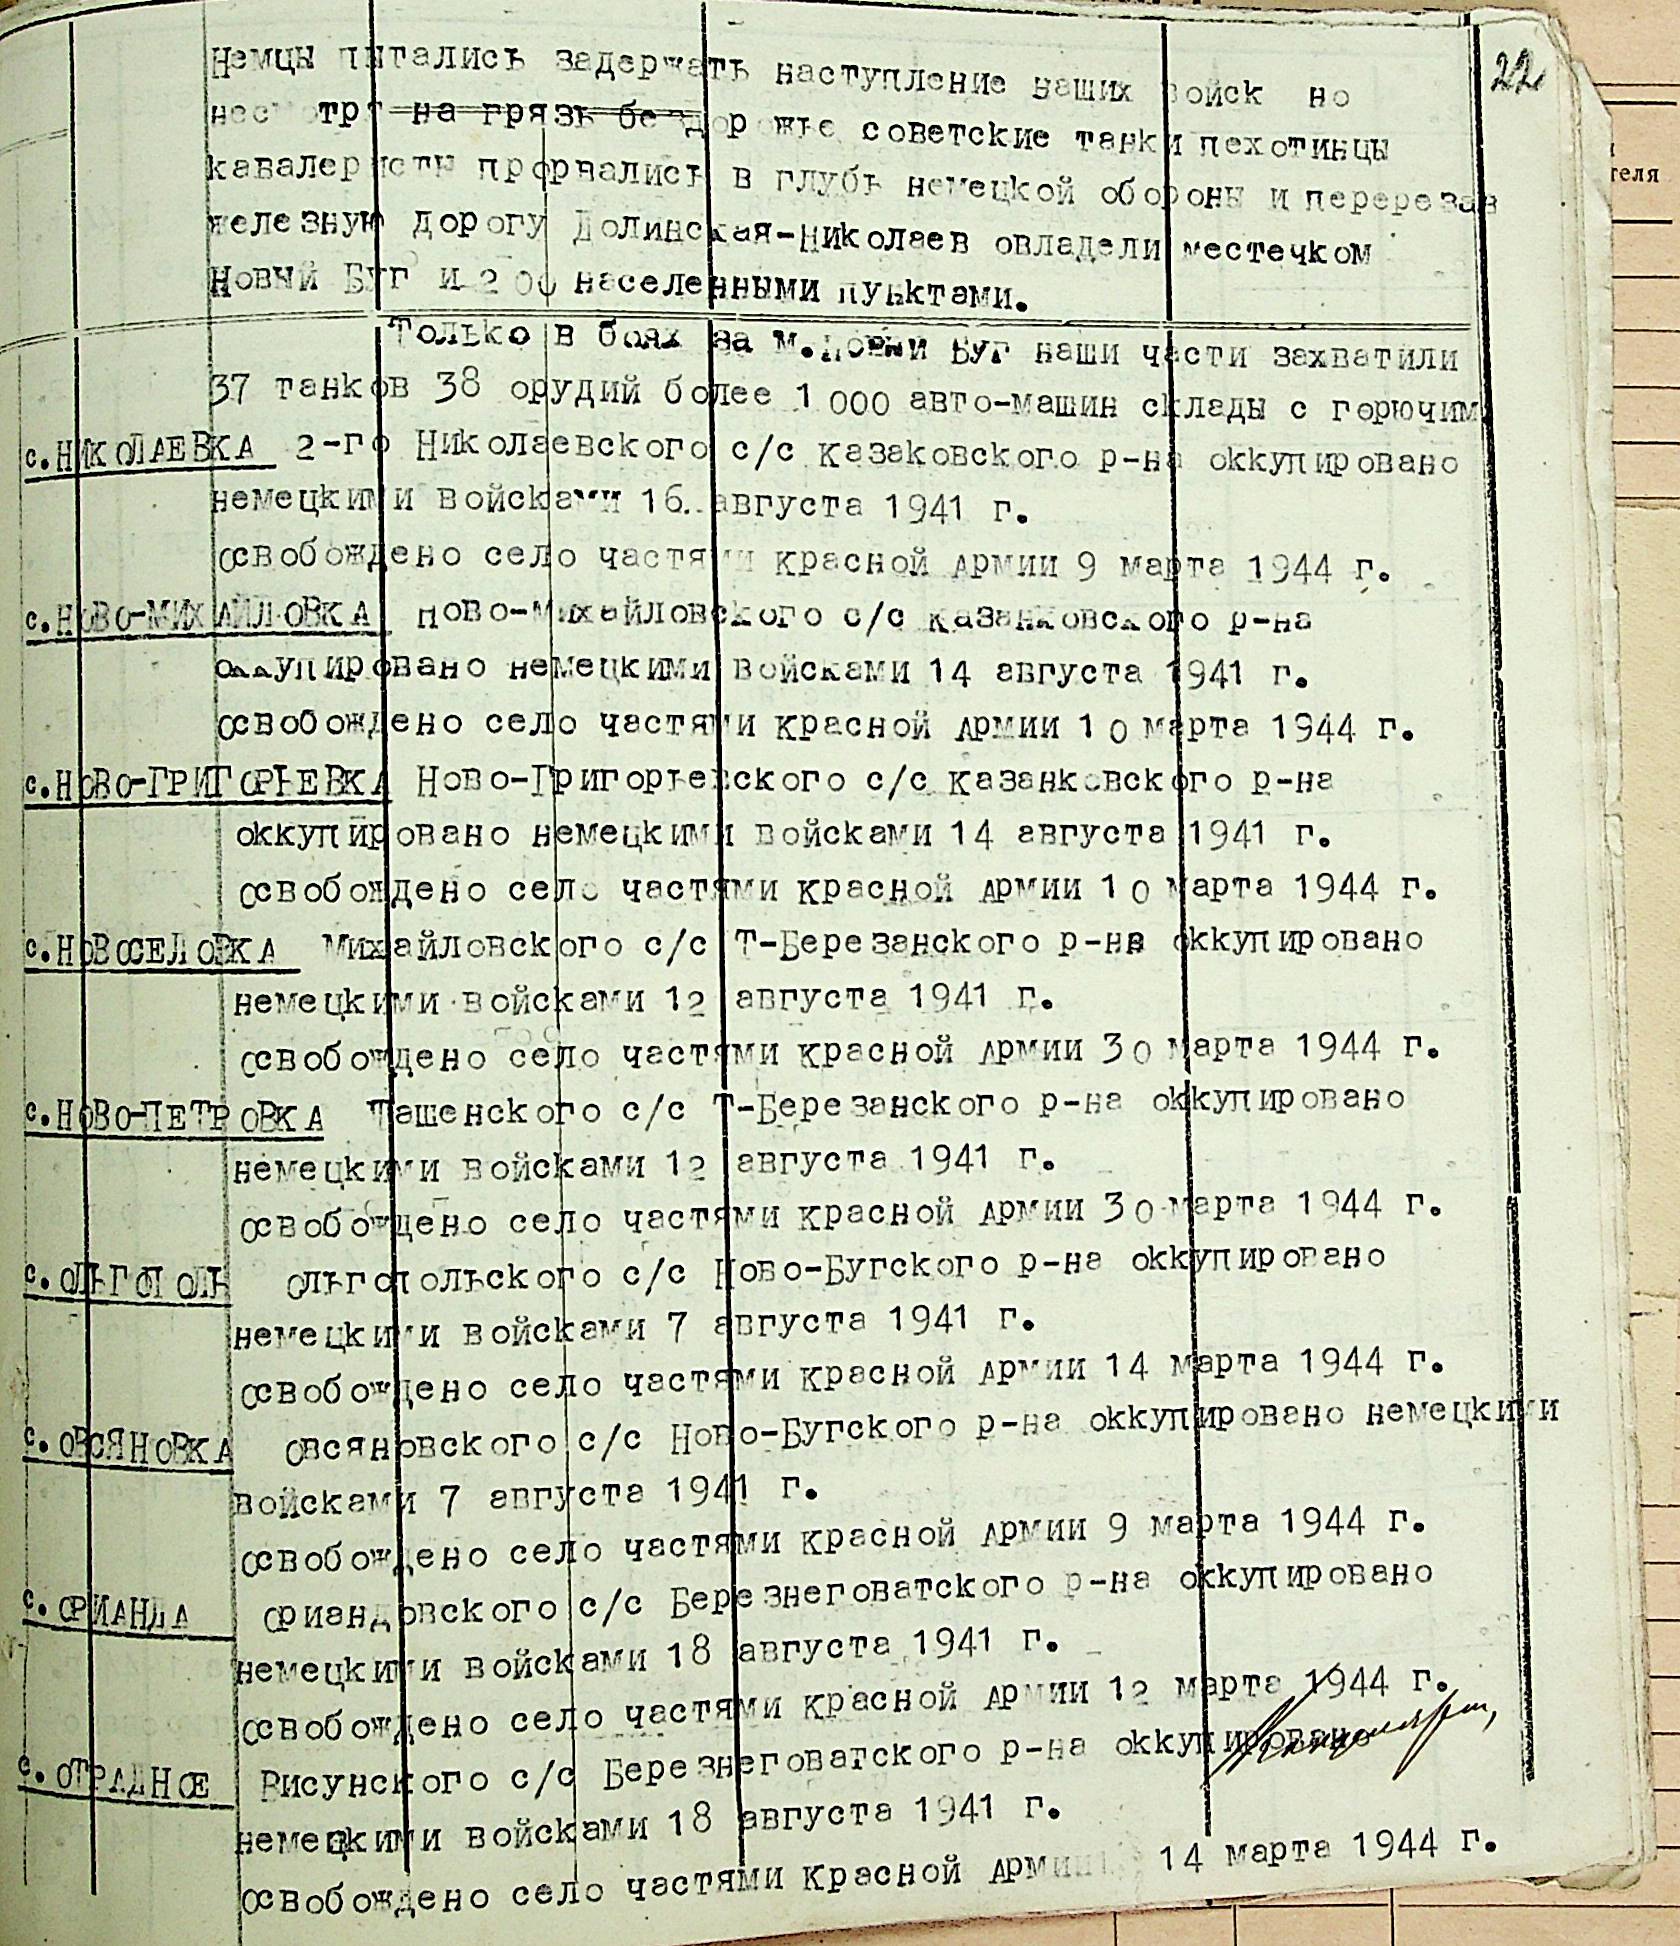 22
Немцы пытались задержать наступление наших войск но
несмотря на грязь бездорожье советские танки пехотинцы
кавалеристы прорвались в глубь немецкой обороны и перерезав
железную дорогу Долинская-Николаев овладели местечком
Новый Буг и 200 населенными пунктами.
Только в боях за м.Новый Буг наши части захватили
37 танков 38 орудий более 1 000 авто-машин склады с горючим
с.НИКОЛАЕВКА 2-го Николаевского с/с Казаковского р-на оккупировано
немецкими войсками 16. августа 1941 г.
освобождено село частями Красной Армии 9 марта 1944 г.
с.НОВО-МИХАЙЛОВКА Ново-Михайловского с/с Казанковского р-на
оккупировано немецкими войсками 14 августа 1941 г.
освобождено село частями Красной Армии 10 марта 1944 г.
с.НОВО-ГРИГОРЬЕВКА Ново-Григорьевского с/с Казанковского р-на
оккупировано немецкими войсками 14 августа 1941 г.
освобождено село частями Красной Армии 10 марта 1944 г.
с.НОВОСЕЛОВКА Михайловского с/с Т-Березанского р-на оккупировано
немецкими войсками 12 августа 1941 г.
освобождено село частями Красной Армии 30 марта 1944 г.
с.НОВО-ПЕТРОВКА Ташенского с/с Т-Березанского р-на оккупировано
немецкими войсками 12 августа 1941 г.
освобождено село частями Красной Армии 30 марта 1944 г.
с.ОЛЬГОПОЛЬ Ольгопольского с/с Ново-Бугского р-на оккупировано
немецкими войсками 7 августа 1941 г.
освобождено село частями Красной Армии 14 марта 1944 г.
с.ОВСЯНОВКА Овсяновского с/с Ново-Бугского р-на оккупировано немецкими
войсками 7 августа 1941 г.
освобождено село частями Красной Армии 9 марта 1944 г.
с.ОРИАНДА Ориандовского с/с Березнеговатского р-на оккупировано
немецкими войсками 18 августа 1941 г.
освобождено село частями Красной Армии 12 марта 1944 г.
с.ОТРАДНОЕ Висунского с/с Березнеговатского р-на оккупировано
немецкими войсками 18 августа 1941 г.
освобождено село частями Красной Армии 14 марта 1944 г.